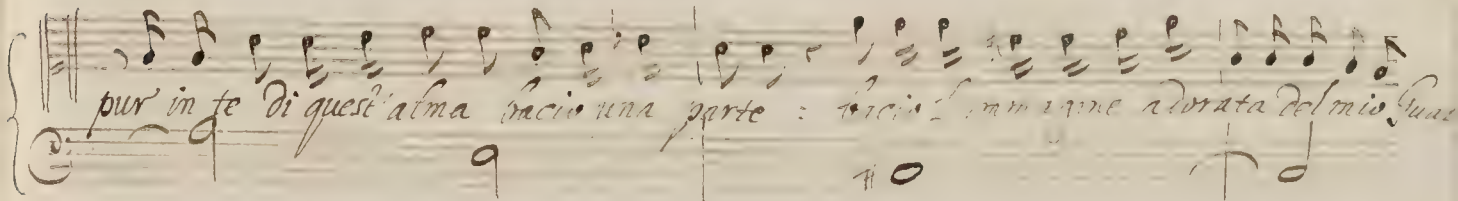 pur in te di quest' alma bacio una parte : bacio l' immagine adorata del mio